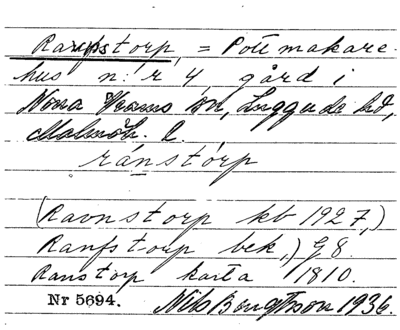 Ranfstorp, = Pottmakare-
hus n:r 4, gård i
Norra Vrams sn, Luggude hd,
Malmöh. l.
ránstórp
(Ravnstorp kb 1927,)
Ranfstorp bek,) G8.
Ranstorp karta 1810.
Nr 5694. Nils Bengtsson 1936.